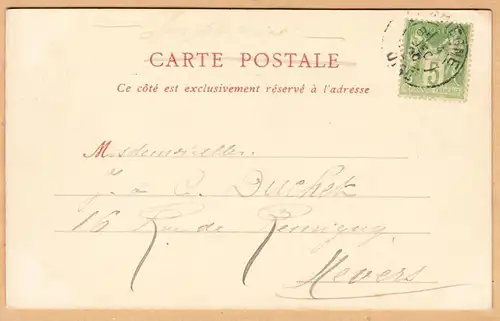 CARTE POSTALE
Ce côté est exclusivement réservé à l'adresse
Mesdemoiselles
Duchek
16 Rue de Rémigny
Nevers
5